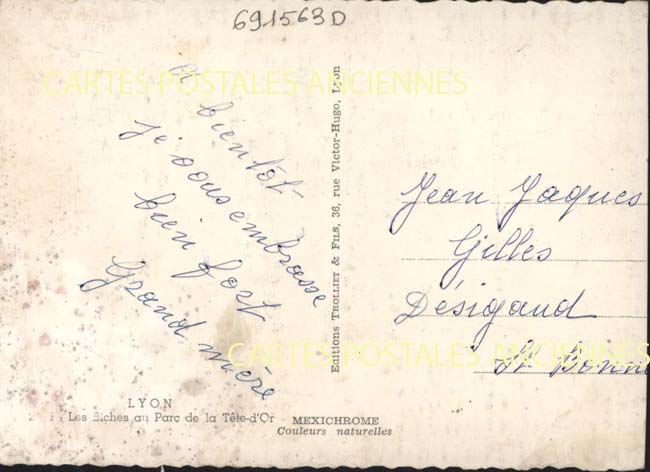 691563D
CARTES POSTALES ANCIENNES
A
bientôt
je vous embrasse
bien fort
Grand mère
Editions TROLLIET & FILS, 36, rue Victor-Hugo, Lyon
Jean Jaques
Gilles
Désigaud
St Bonne
CARTES POSTALES ANCIENNES
LYON
Les Biches au Parc de la Tête-d'Or
MEXICHROME
Couleurs naturelles